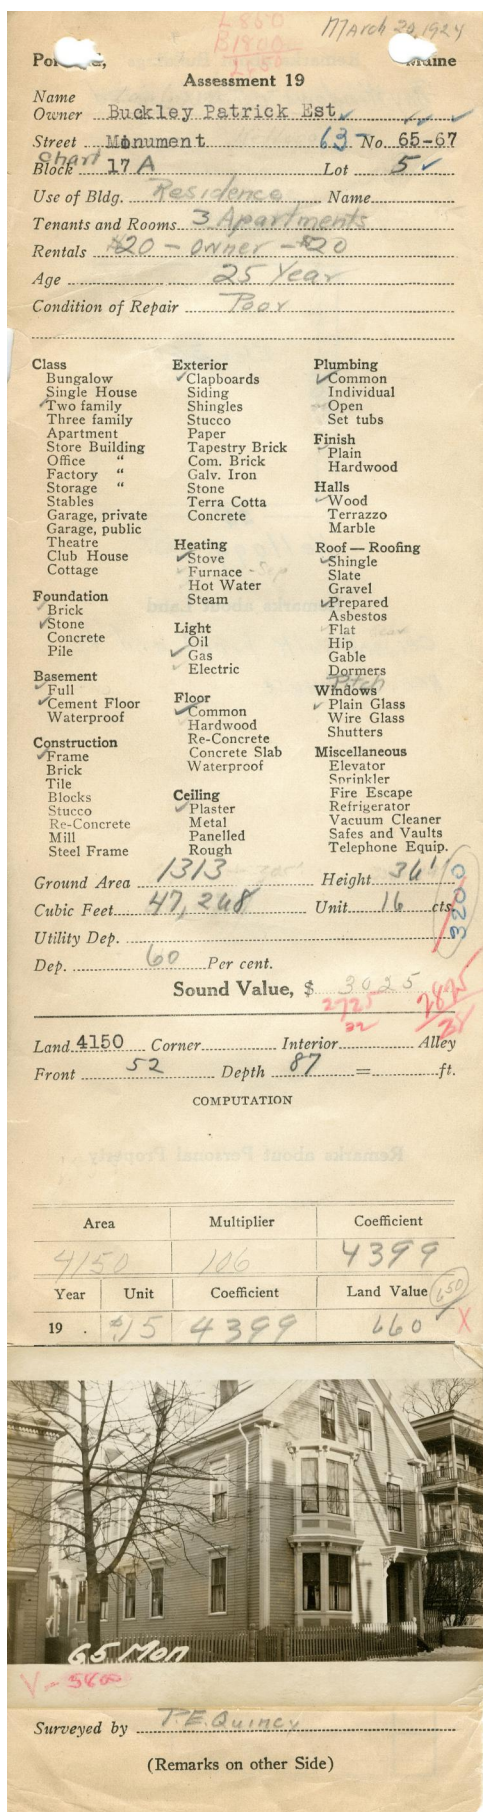 L 850
B 1800
2650
March 20, 1924
Po d, Maine
Assessment 19
Name
Owner Buckley Patrick Est.
Street Monument 63- No. 65-67
Chart
Block 17 A Lot 5
Use of Bldg. Residence Name
Tenants and Rooms 3 Apartments
Rentals $20 - Owner - $20
Age 25 Year
Condition of Repair Poor
Class
Bungalow
Single House
Two family
Three family
Apartment
Store Building
Office "
Factory "
Storage "
Stables
Garage, private
Garage, public
Theatre
Club House
Cottage
Foundation
Brick
Stone
Concrete
Pile
Basement
Full
Cement Floor
Waterproof
Construction
Frame
Brick
Tile
Blocks
Stucco
Re-Concrete
Mill
Steel Frame
Exterior
Clapboards
Siding
Shingles
Stucco
Paper
Tapestry Brick
Com. Brick
Galv. Iron
Stone
Terra Cotta
Concrete
Heating
Stove
Furnace - Sep
Hot Water
Steam
Light
Oil
Gas
Electric
Floor
Common
Hardwood
Re-Concrete
Concrete Slab
Waterproof
Ceiling
Plaster
Metal
Panelled
Rough
Plumbing
Common
Individual
Open
Set tubs
Finish
Plain
Hardwood
Halls
Wood
Terrazzo
Marble
Roof — Roofing
Shingle
Slate
Gravel
Prepared
Asbestos
Flat
Hip
Gable
Dormers
Pitch
Windows
Plain Glass
Wire Glass
Shutters
Miscellaneous
Elevator
Sprinkler
Fire Escape
Refrigerator
Vacuum Cleaner
Safes and Vaults
Telephone Equip.
Ground Area 1313 Height 36'
Cubic Feet 47,268 Unit 16 cts.
3200
Utility Dep.
Dep. 60 Per cent.
Sound Value, $ 3025
2725
22
2875
Land 4150 Corner Interior Alley
Front 52 Depth 87 = ft.
COMPUTATION
Area Multiplier Coefficient
4150 106 4399
Year Unit Coefficient Land Value 650
19 . $.15 4399 660 X
65 Mon
V - 5800
Surveyed by P.E. Quincy
(Remarks on other Side)